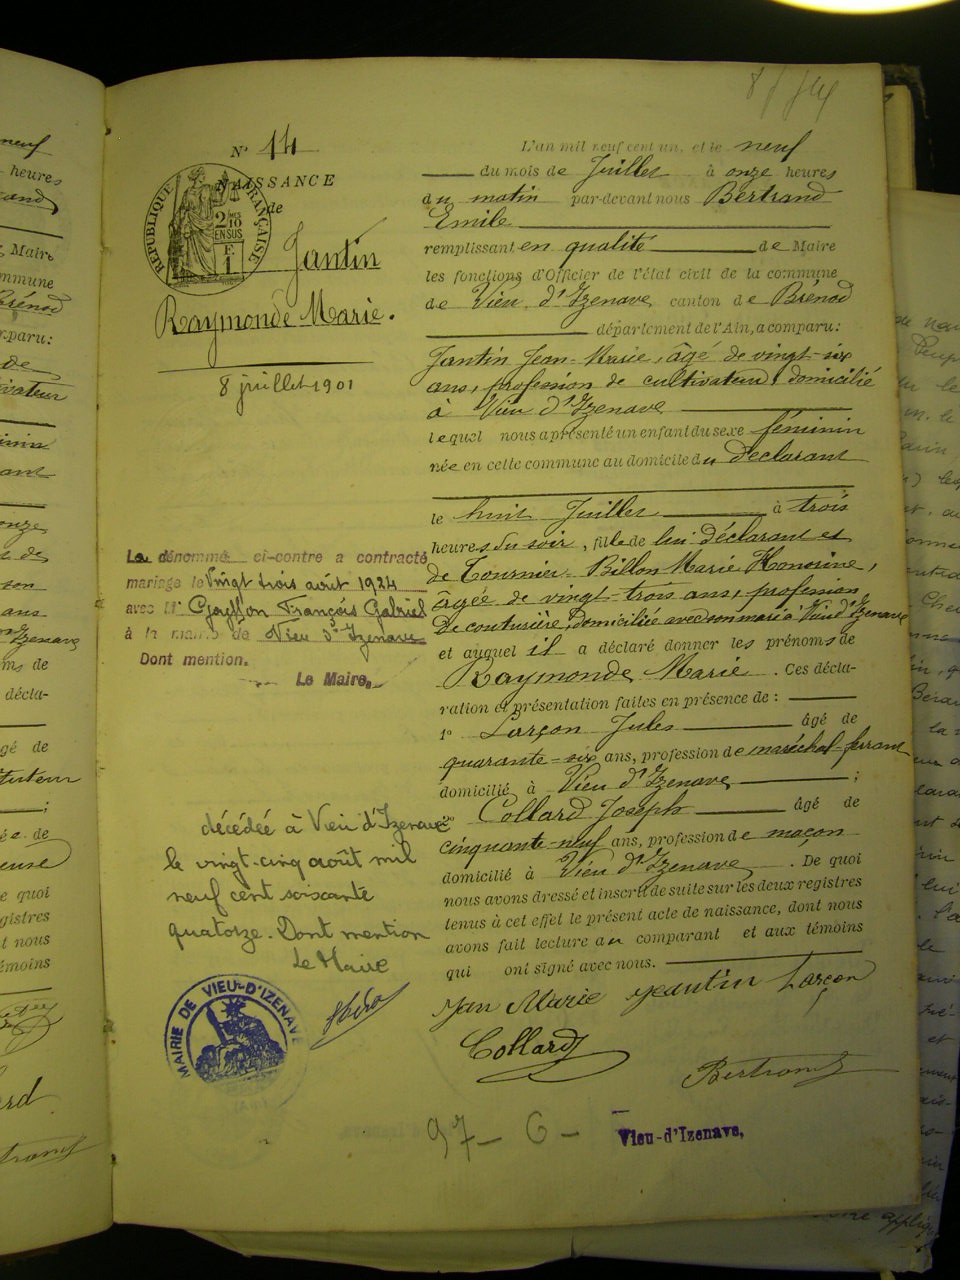 N° 14
NAISSANCE
de
Jantin
Raymonde Marie.
8 juillet 1901
RÉPUBLIQUE FRANÇAISE
2/10 EN SUS
L'an mil neuf cent un, et le neuf
du mois de Juillet à onze heures
du matin par-devant nous Bertrand
Emile
remplissant en qualité de Maire
les fonctions d'Officier de l'état civil de la commune
de Vieu d'Izenave canton de Brénod
département de l'Ain, a comparu:
Jantin Jean-Marie, âgé de vingt-six
ans, profession de cultivateur, domicilié
à Vieu d'Izenave
lequel nous a présenté un enfant du sexe féminin
née en cette commune au domicile du déclarant
le huit Juillet à trois
heures du soir, fille de lui déclarant et
de Tournier-Billon Marie Honorine,
âgée de vingt-trois ans, profession
de couturière, domiciliée avec son mari à Vieu d'Izenave
et auquel il a déclaré donner les prénoms de
Raymonde Marie. Ces décla-
ration et présentation faites en présence de :
1° Larçon Jules âgé de
quarante-six ans, profession de maréchal-ferrant
domicilié à Vieu d'Izenave ;
Collard Joseph âgé de
cinquante-neuf ans, profession de maçon
domicilié à Vieu d'Izenave. De quoi
nous avons dressé et inscrit de suite sur les deux registres
tenus à cet effet le présent acte de naissance, dont nous
avons fait lecture au comparant et aux témoins
qui ont signé avec nous.
Jan Marie Jeantin Larçon
Collard
Bertrand
La dénommé ci-contre a contracté
mariage le vingt trois août 1924
avec Mr François Gabriel
à la mairie de Vieu d'Izenave
Dont mention.
Le Maire,
décédée à Vieu d'Izenave
le vingt-cinq août mil
neuf cent soixante
quatorze. Dont mention
Le Maire
MAIRIE DE VIEU-D'IZENAVE
97 - 6 -
Vieu-d'Izenave,